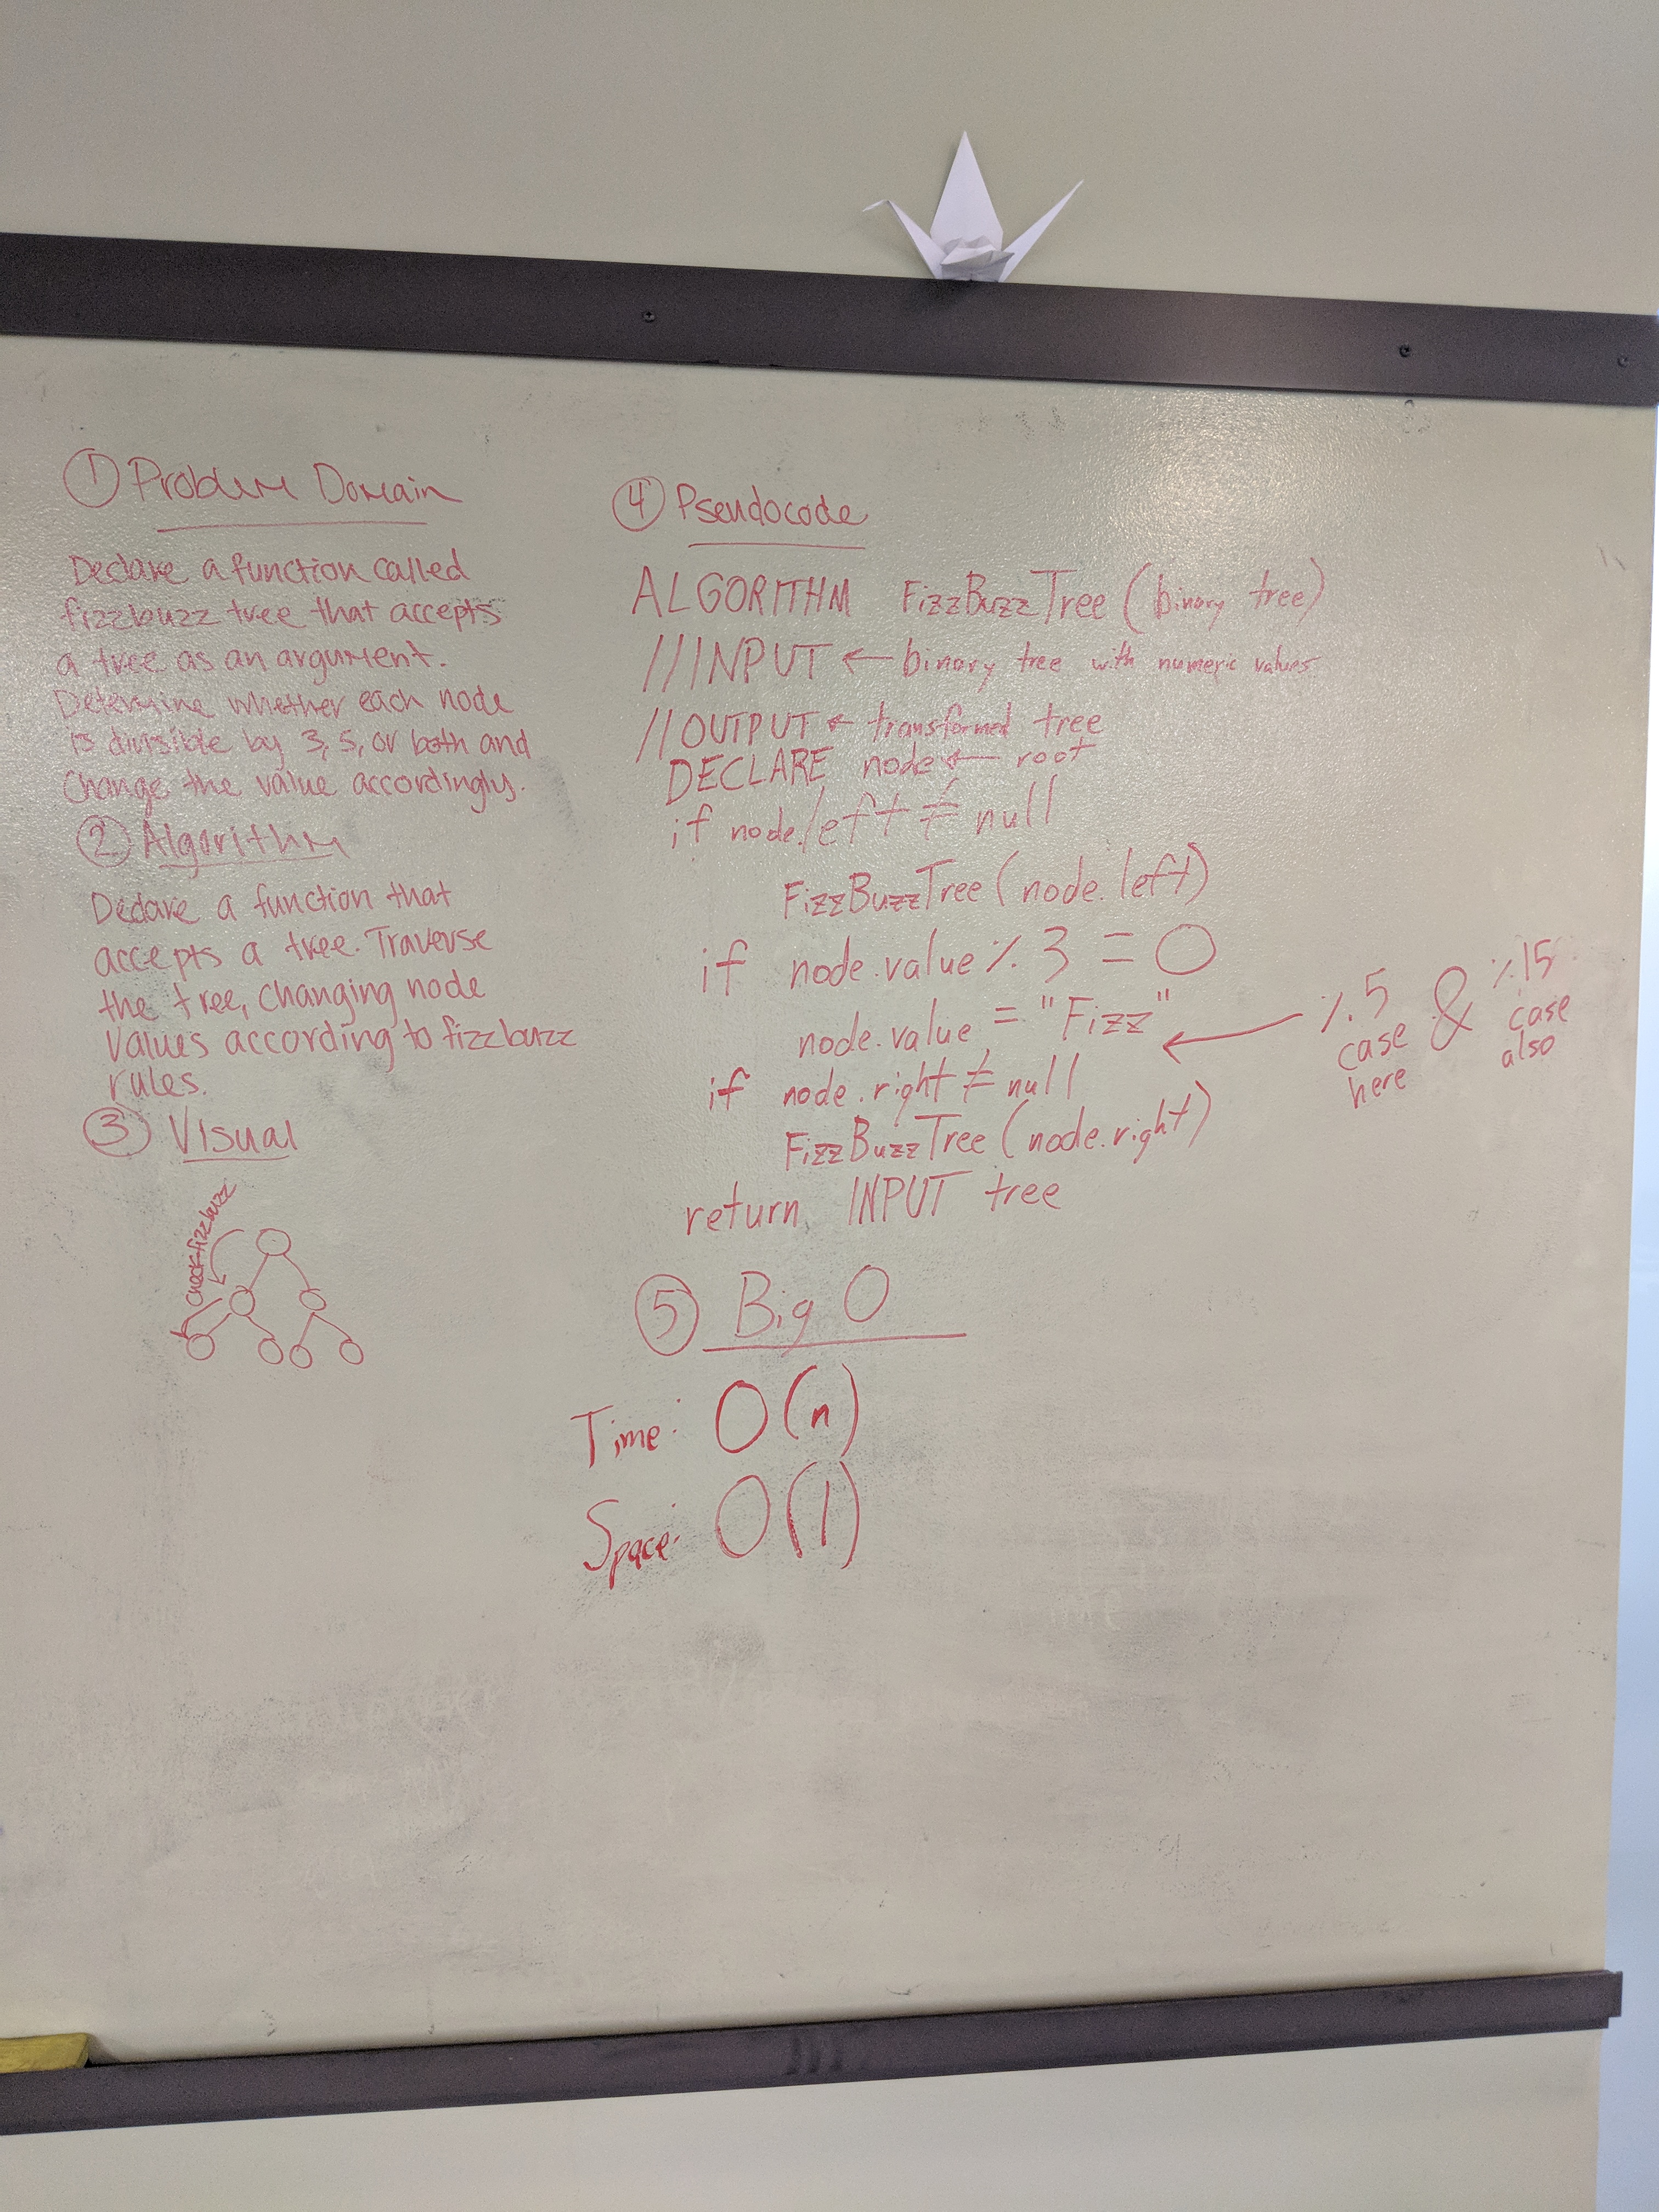 ① Problem Domain
Declare a function called
fizzbuzz tree that accepts
a tree as an argument.
Determine whether each node
is divisible by 3, 5, or both and
change the value accordingly.
② Algorithm
Declare a function that
accepts a tree. Traverse
the tree, changing node
values according to fizzbuzz
rules.
③ Visual
check fizzbuzz
④ Pseudocode
ALGORITHM FizzBuzzTree (binary tree)
///INPUT ← binary tree with numeric values
//OUTPUT ← transformed tree
DECLARE node ← root
if node.left ≠ null
FizzBuzzTree (node.left)
if node.value % 3 = 0
node.value = "Fizz"
if node.right ≠ null
FizzBuzzTree (node.right)
return INPUT tree
← % 5 & % 15
case case
here also
⑤ Big O
Time: O(n)
Space: O(1)